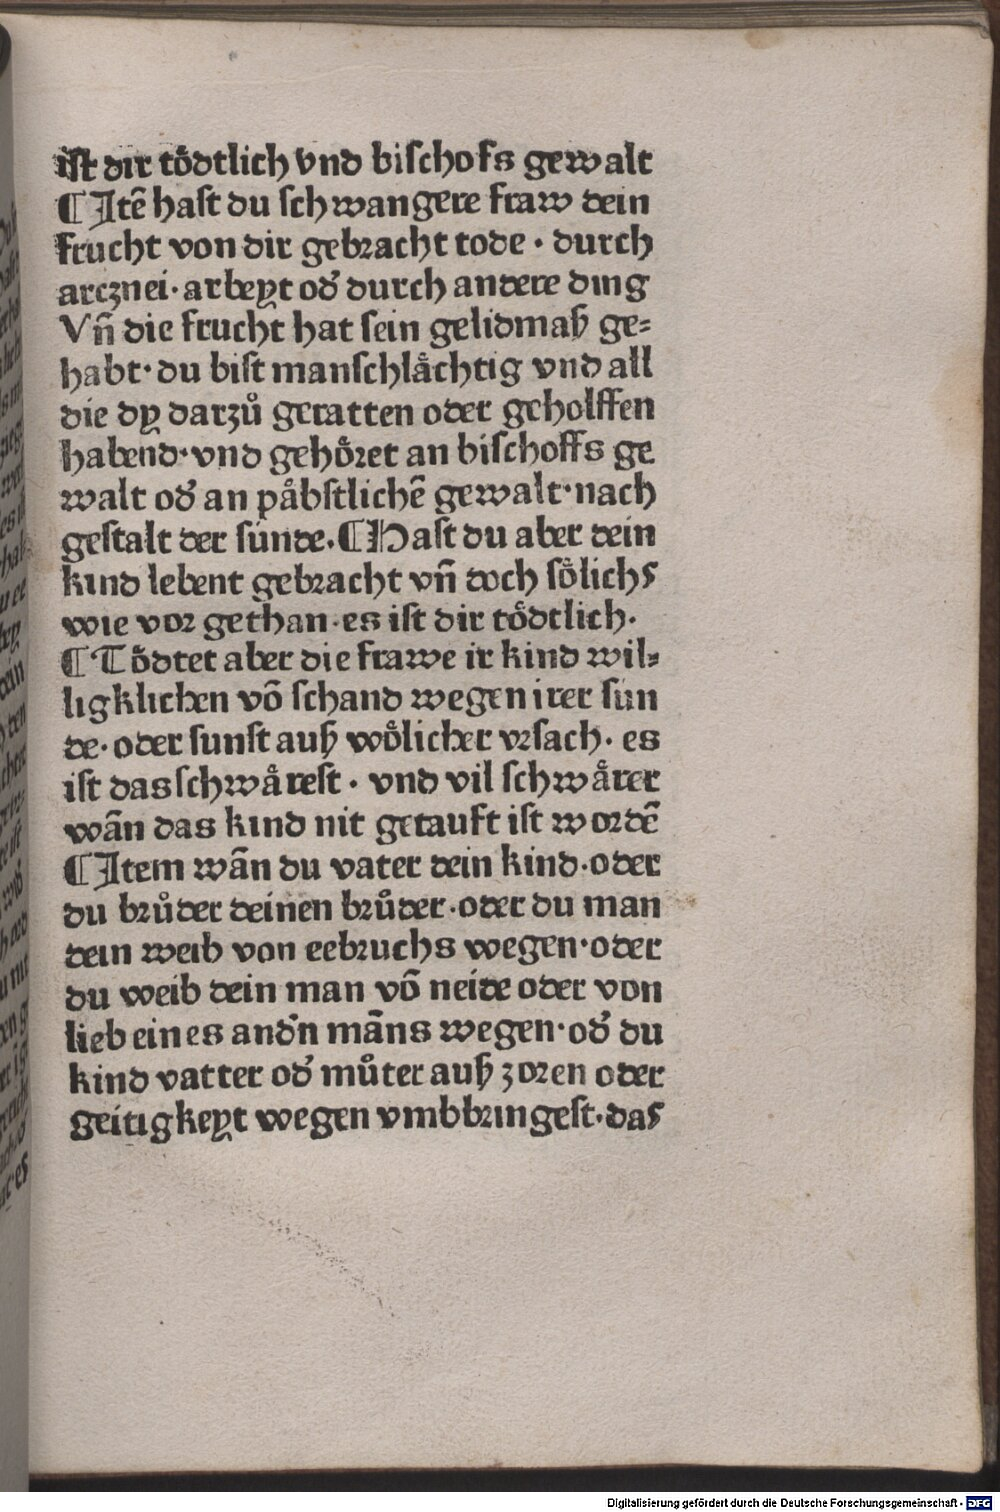 iſt dir toͤdtlich vnd biſchofs gewalt
¶ Itē haſt du ſchwangere fraw dein
frucht von dir gebracht tode · durch
arcznei · arbeyt od̓ durch andere ding
Vn̄ die frucht hat ſein gelidmaß ge⸗
habt · du biſt manſchlaͤchtig vnd all
die dy darzů geratten oder geholffen
habend · vnd gehoͤret an biſchoffs ge
walt od̓ an paͤbſtlichē gewalt · nach
geſtalt der sünde. ¶ Haſt du aber dein
kind lebent gebracht vn̄ doch ſoͤlichs
wie vor gethan · es iſt dir toͤdtlich.
¶ Toͤdtet aber die frawe ir kind wil⸗
ligklichen vō ſchand wegen irer ſün
de · oder ſunſt auß woͤlicher vrſach · es
iſt das ſchwaͤreſt · vnd vil ſchwaͤrer
wān das kind nit getauft iſt wordē
¶ Item wān du vater dein kind · oder
du brůder deinen brůder · oder du man
dein weib von eebruchs wegen · oder
du weib dein man vō neide oder von
lieb eines and̓n māns wegen · od̓ du
kind vatter od̓ můter auß zoren oder
geitigkeyt wegen vmbbringeſt · das
Digitalisierung gefördert durch die Deutsche Forschungsgemeinschaft - DFG